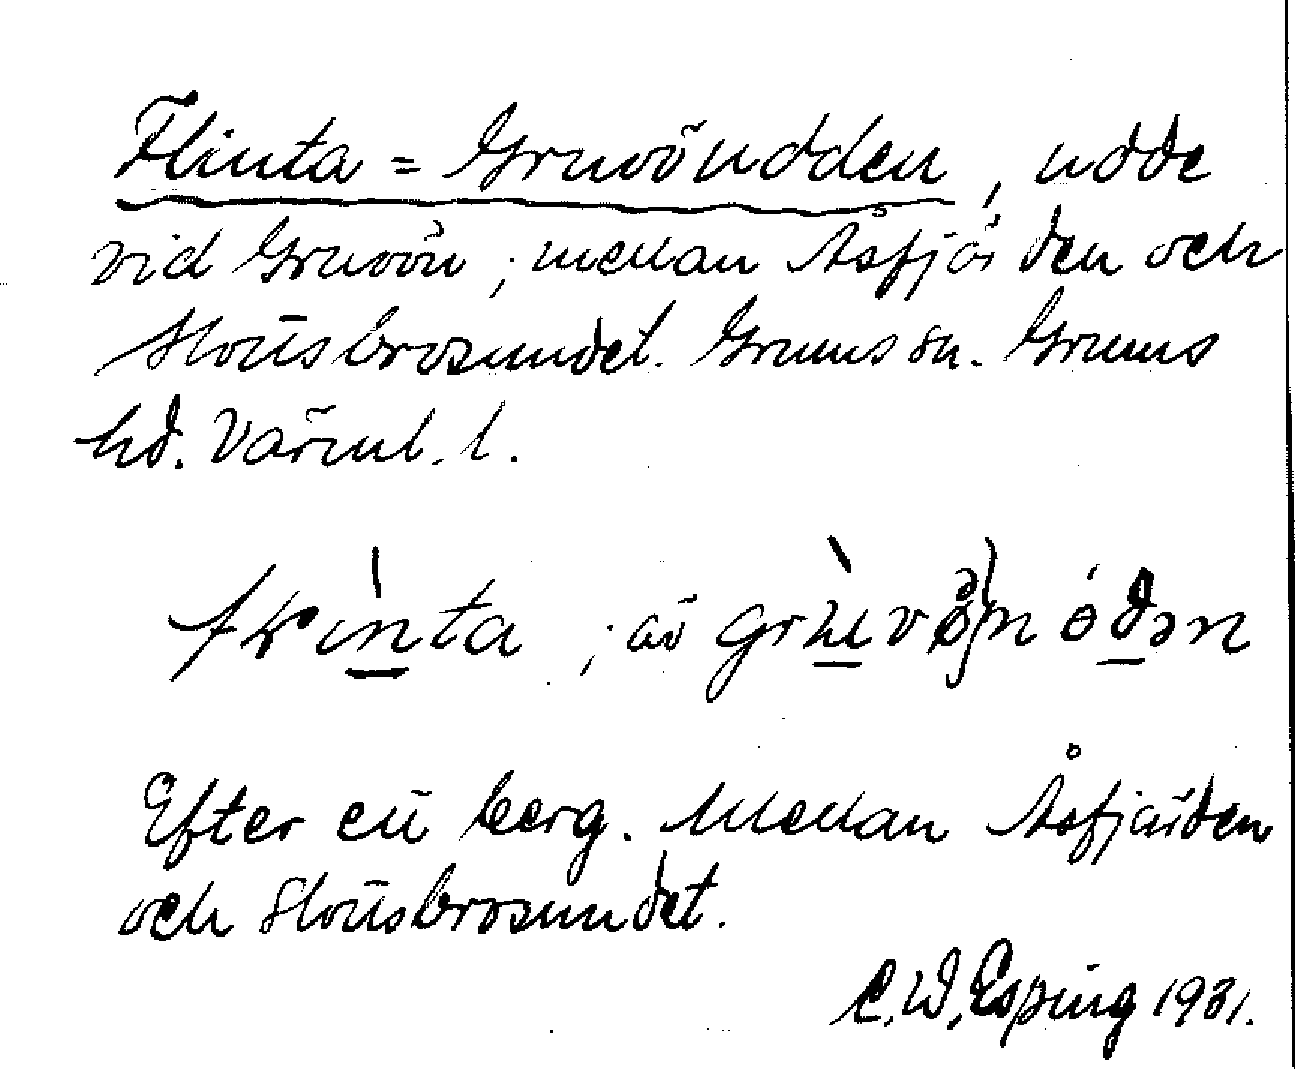 Flinta = Gruvöudden, udde
vid Gruvön, mellan Åsfjärden och
Slottsbrosundet. Grums sn. Grums
hd. Värml. l.
; äv
Efter ett berg. Mellan Åsfjärden
och Slottsbrosundet.
C.W. Esping 1931.